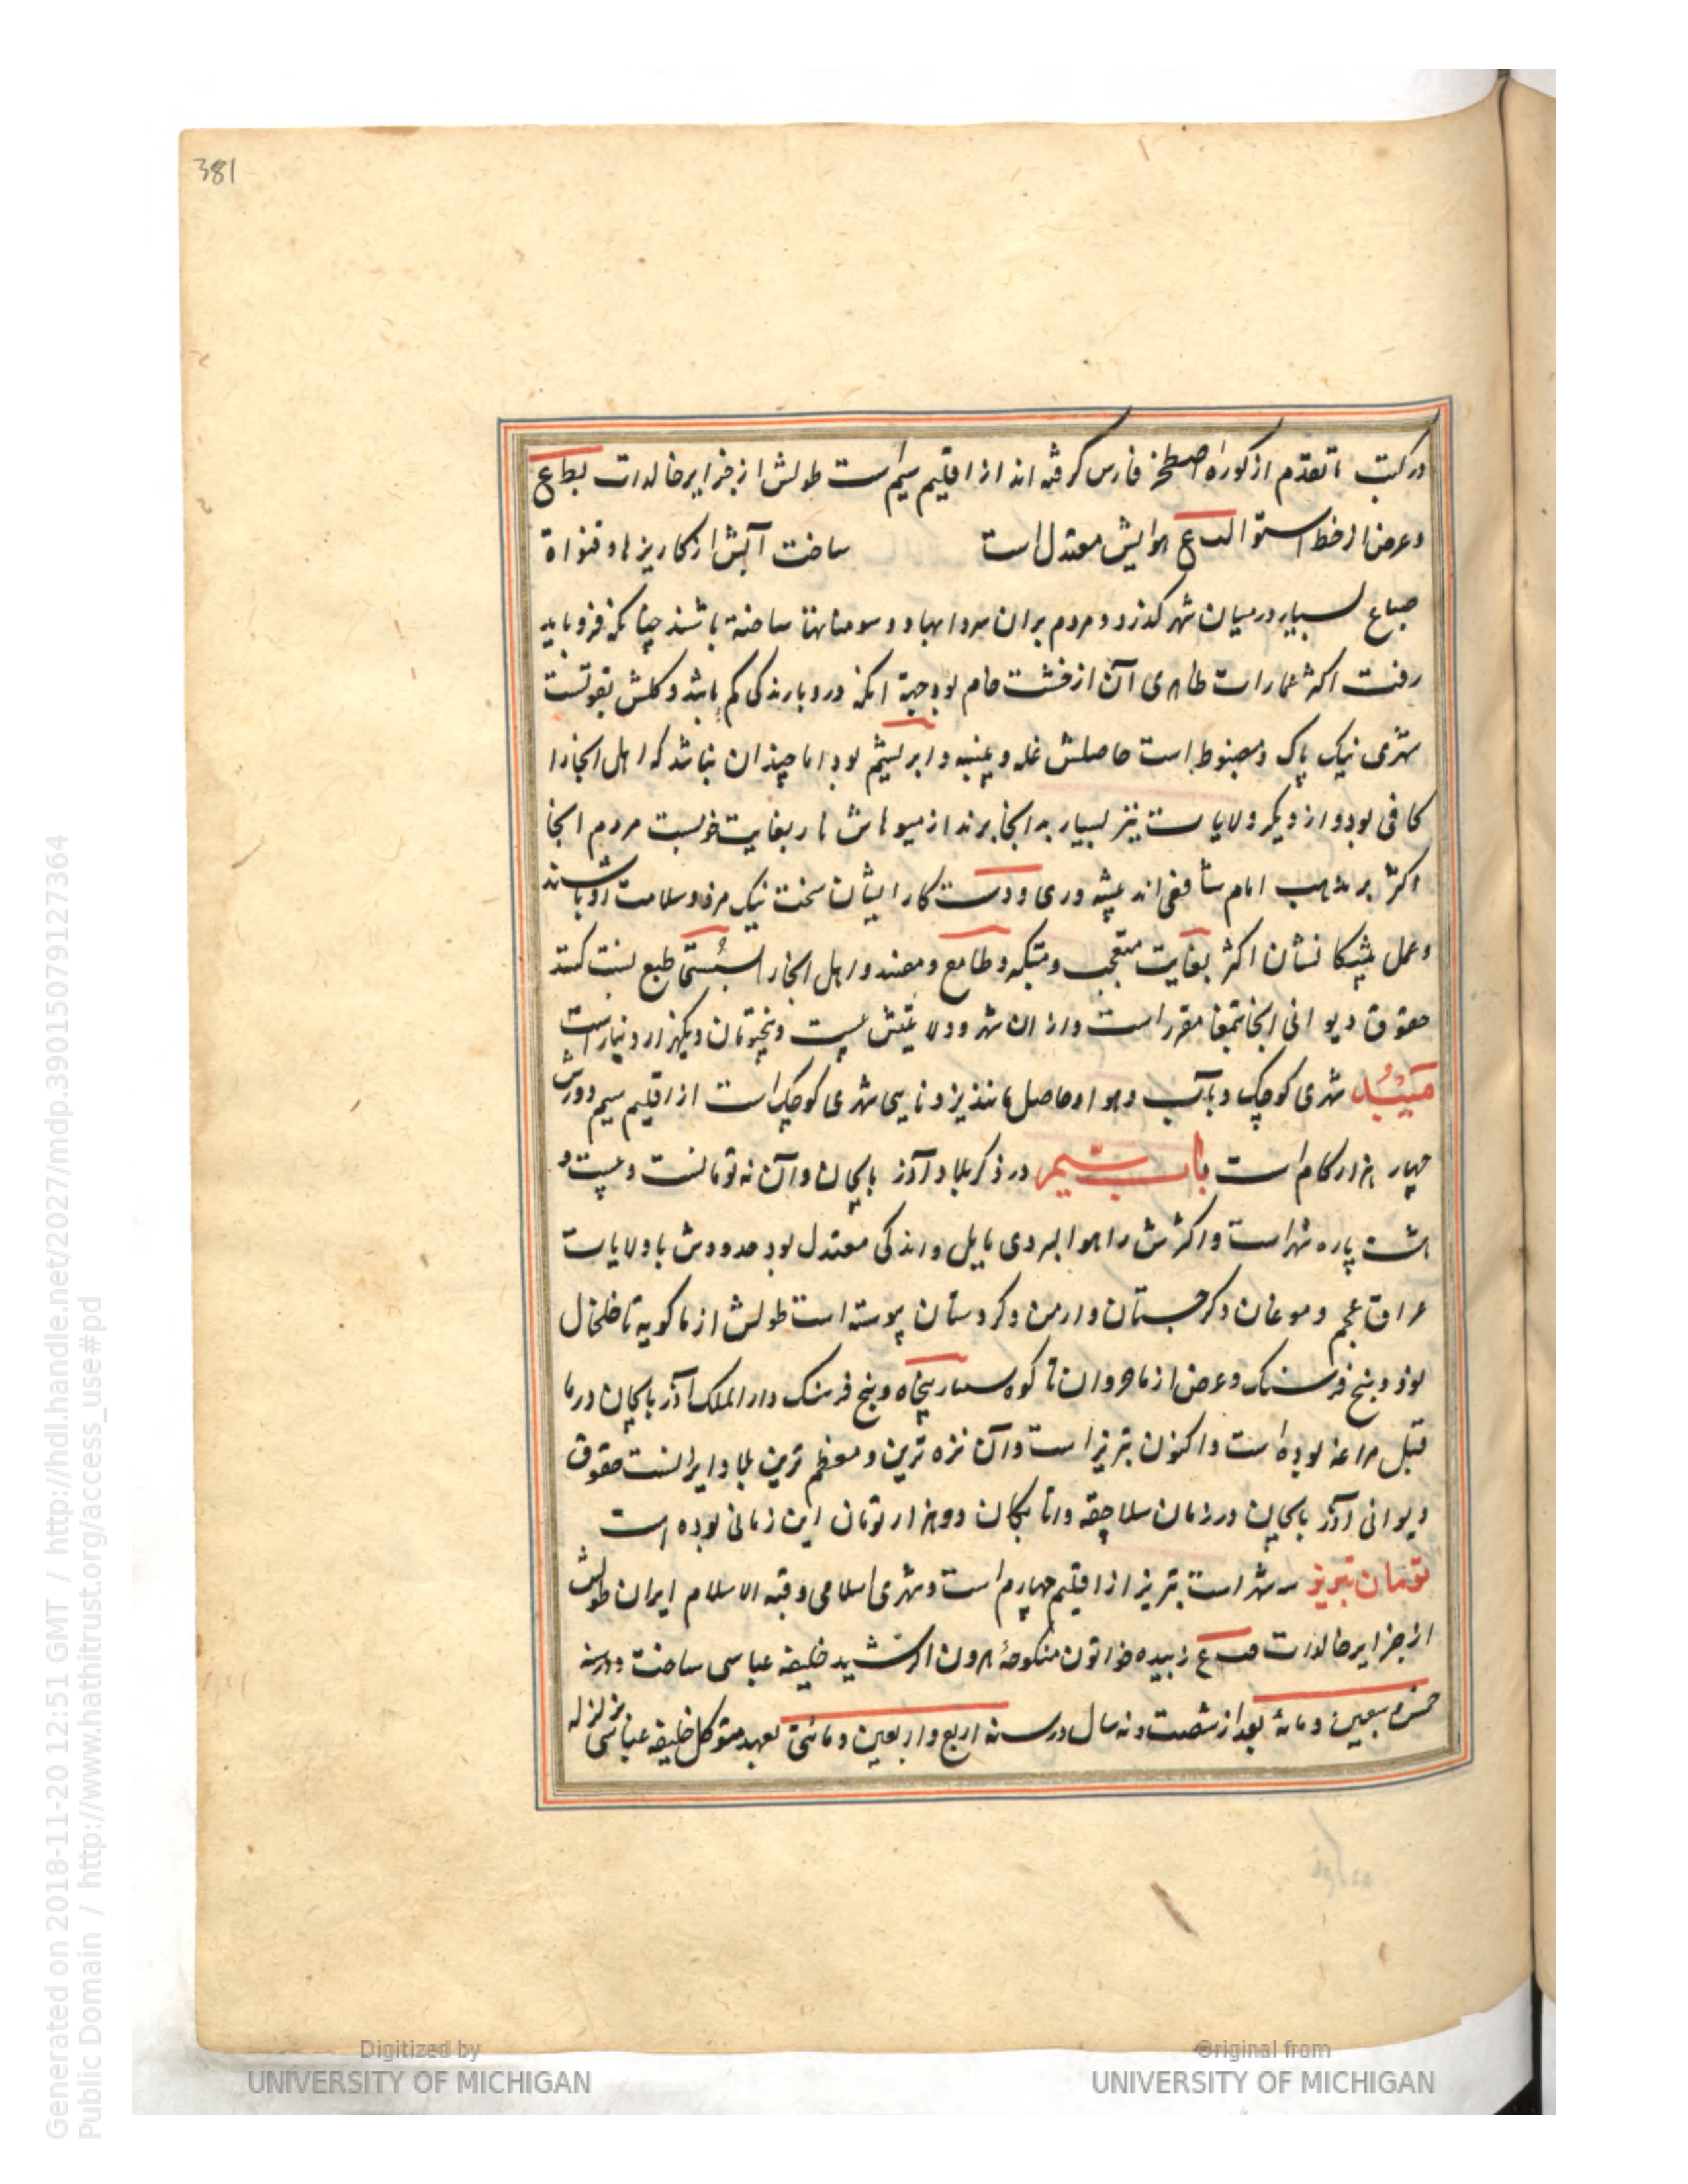 381
در کتب ماتقدم از کوره اصطخر فارس گرفته اند از اقلیم سیم است طولش از جزایر خالدات بطاع
و عرض از خط استوا الدع هوایش معتدل است ساخت آبش از کاریزها و قنواة
صباع بسیار در میان شهر کذرد و مردم بران سردابها و ساخته باشند چنانکه فرو باید
رفت اکثر عمارات ظاهری آن از خشت خام بود جهة انکه درو بارندکی کم باشد و کلش بقوتست
شهری نیک پاک و مضبوط است حاصلش غله و پنبه و ابریشم بود اما چندان نباشد که اهل انجا را
کافی بود و از دیکر ولایات نیز بسیار به انجا برند از میوهاش نار بغایت خوبست مردم انجا
اکثر بر مذهب امام شافعی اند پیشه وری و دست کار ایشان سخت نیک مرد و سلامت رو باشند
و عمل پیشکانشان اکثر بغایت متعجب و متکبر و طامع و مفسد و اهل انجا را بسستی طبع نسبت کنند
حقوق دیوانی انجا بتمغا مقرر است و از ان شهر و ولایتش بیست و پنج تومان و یکهزار دینار است
میبد شهری کوچک و باب و هوا و حاصل مانند یزد نایی شهری کوچک است از اقلیم سیم دورش
چهار هزار کام است باب سیم در ذکر بلاد آذربایجان و آن نه تومانست و بیست و
هشت پاره شهر است و اکثرش را هوا بسردی مایل و اندکی معتدل بود حدودش با ولایات
عراق عجم و موغان و کرجستان و ارمن و کردستان پیوسته است طولش از ماکویه تا خلخال
نود و پنج فرسنک و عرض از ماجروان تا کوه سینا پنجاه و پنج فرسنک دار الملک آذربایجان در ما
قبل مراغه بوده است و اکنون تبریز است و آن نزه ترین و معظم ترین بلاد ایرانست حقوق
دیوانی آذربایجان در زمان سلاجقه و اتابکان دو هزار تومان این زمانی بوده است
تومان تبریز سه شهر است تبریز از اقلیم چهارم است و شهری اسلامی و قبة الاسلام ایران طولش
از جزایر خالدات زبیده خواتون منکوحهٔ هرون الرشید خلیفه عباسی ساخت در سنه
خمس و سبعین و مائة بعد از شصت و نه سال در سنه اربع و اربعین و مائتی بعهد متوکل خلیفه عباسی بزلزله
Generated on 2018-11-20 12:51 GMT / http://hdl.handle.net/2027/mdp.39015079127364
Public Domain / http://www.hathitrust.org/access_use#pd
Digitized by
UNIVERSITY OF MICHIGAN
Original from
UNIVERSITY OF MICHIGAN